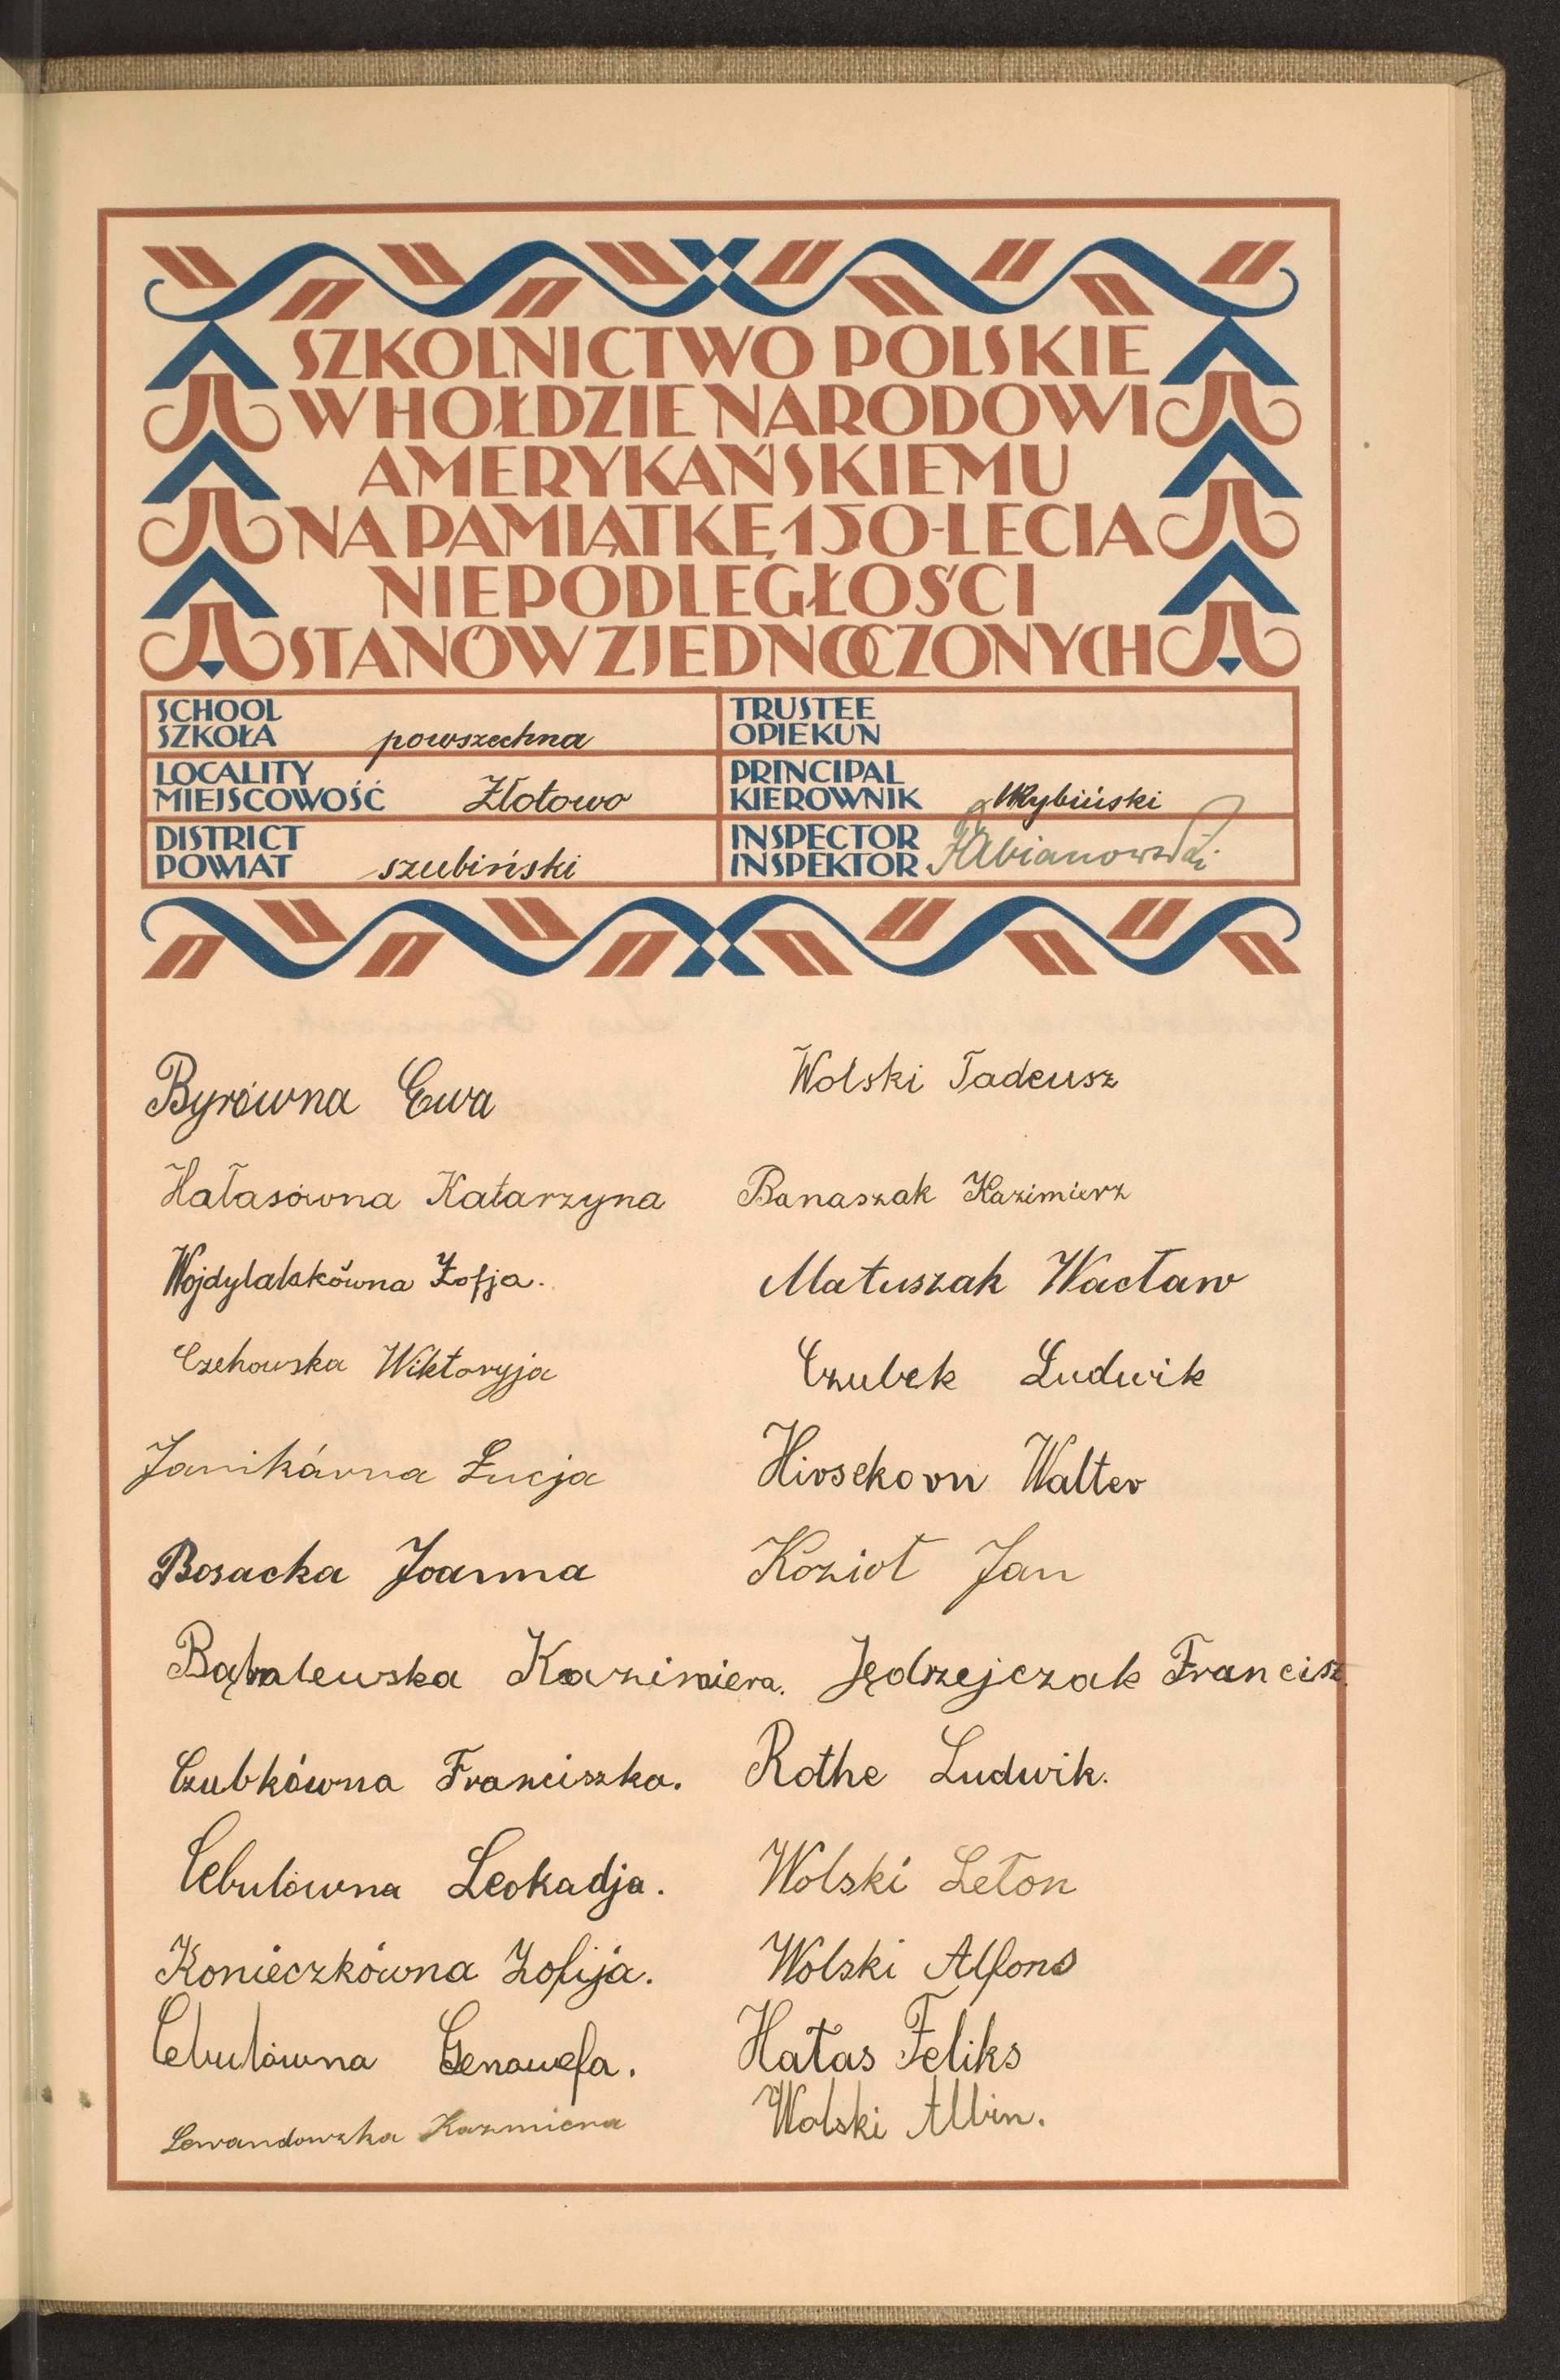 SZKOLNICTWO POLSKIE
W HOŁDZIE NARODOWI
AMERYKAŃSKIEMU
NA PAMIĄTKĘ 150-LECIA
NIEPODLEGŁOŚCI
STANÓW ZJEDNOCZONYCH
SCHOOL
SZKOŁA powszechna
TRUSTEE
OPIEKUN
LOCALITY
MIEJSCOWOŚĆ Złotowo
PRINCIPAL
KIEROWNIK
DISTRICT
POWIAT szubiński
INSPECTOR
INSPEKTOR
Byrówna Ewa
Hałasówna Katarzyna
Zofja.
Czehowska Wiktoryja
Janikówna Łucja
Bosacka Joanna
Kazimiera.
Czubkówna Franciszka.
Cebulówna Leokadja.
Konieczkówna Zofija.
Cebulówna Genowefa.
Lewandowska Kazmiera
Wolski Tadeusz
Banaszak Kazimierz
Matuszak Wacław
Czubek Ludwik
Hirsekorn Walter
Kozioł Jan
Jędrzejczak Francisz.
Rothe Ludwik.
Wolski Leton
Wolski Alfons
Hałas Feliks
Wolski Albin.